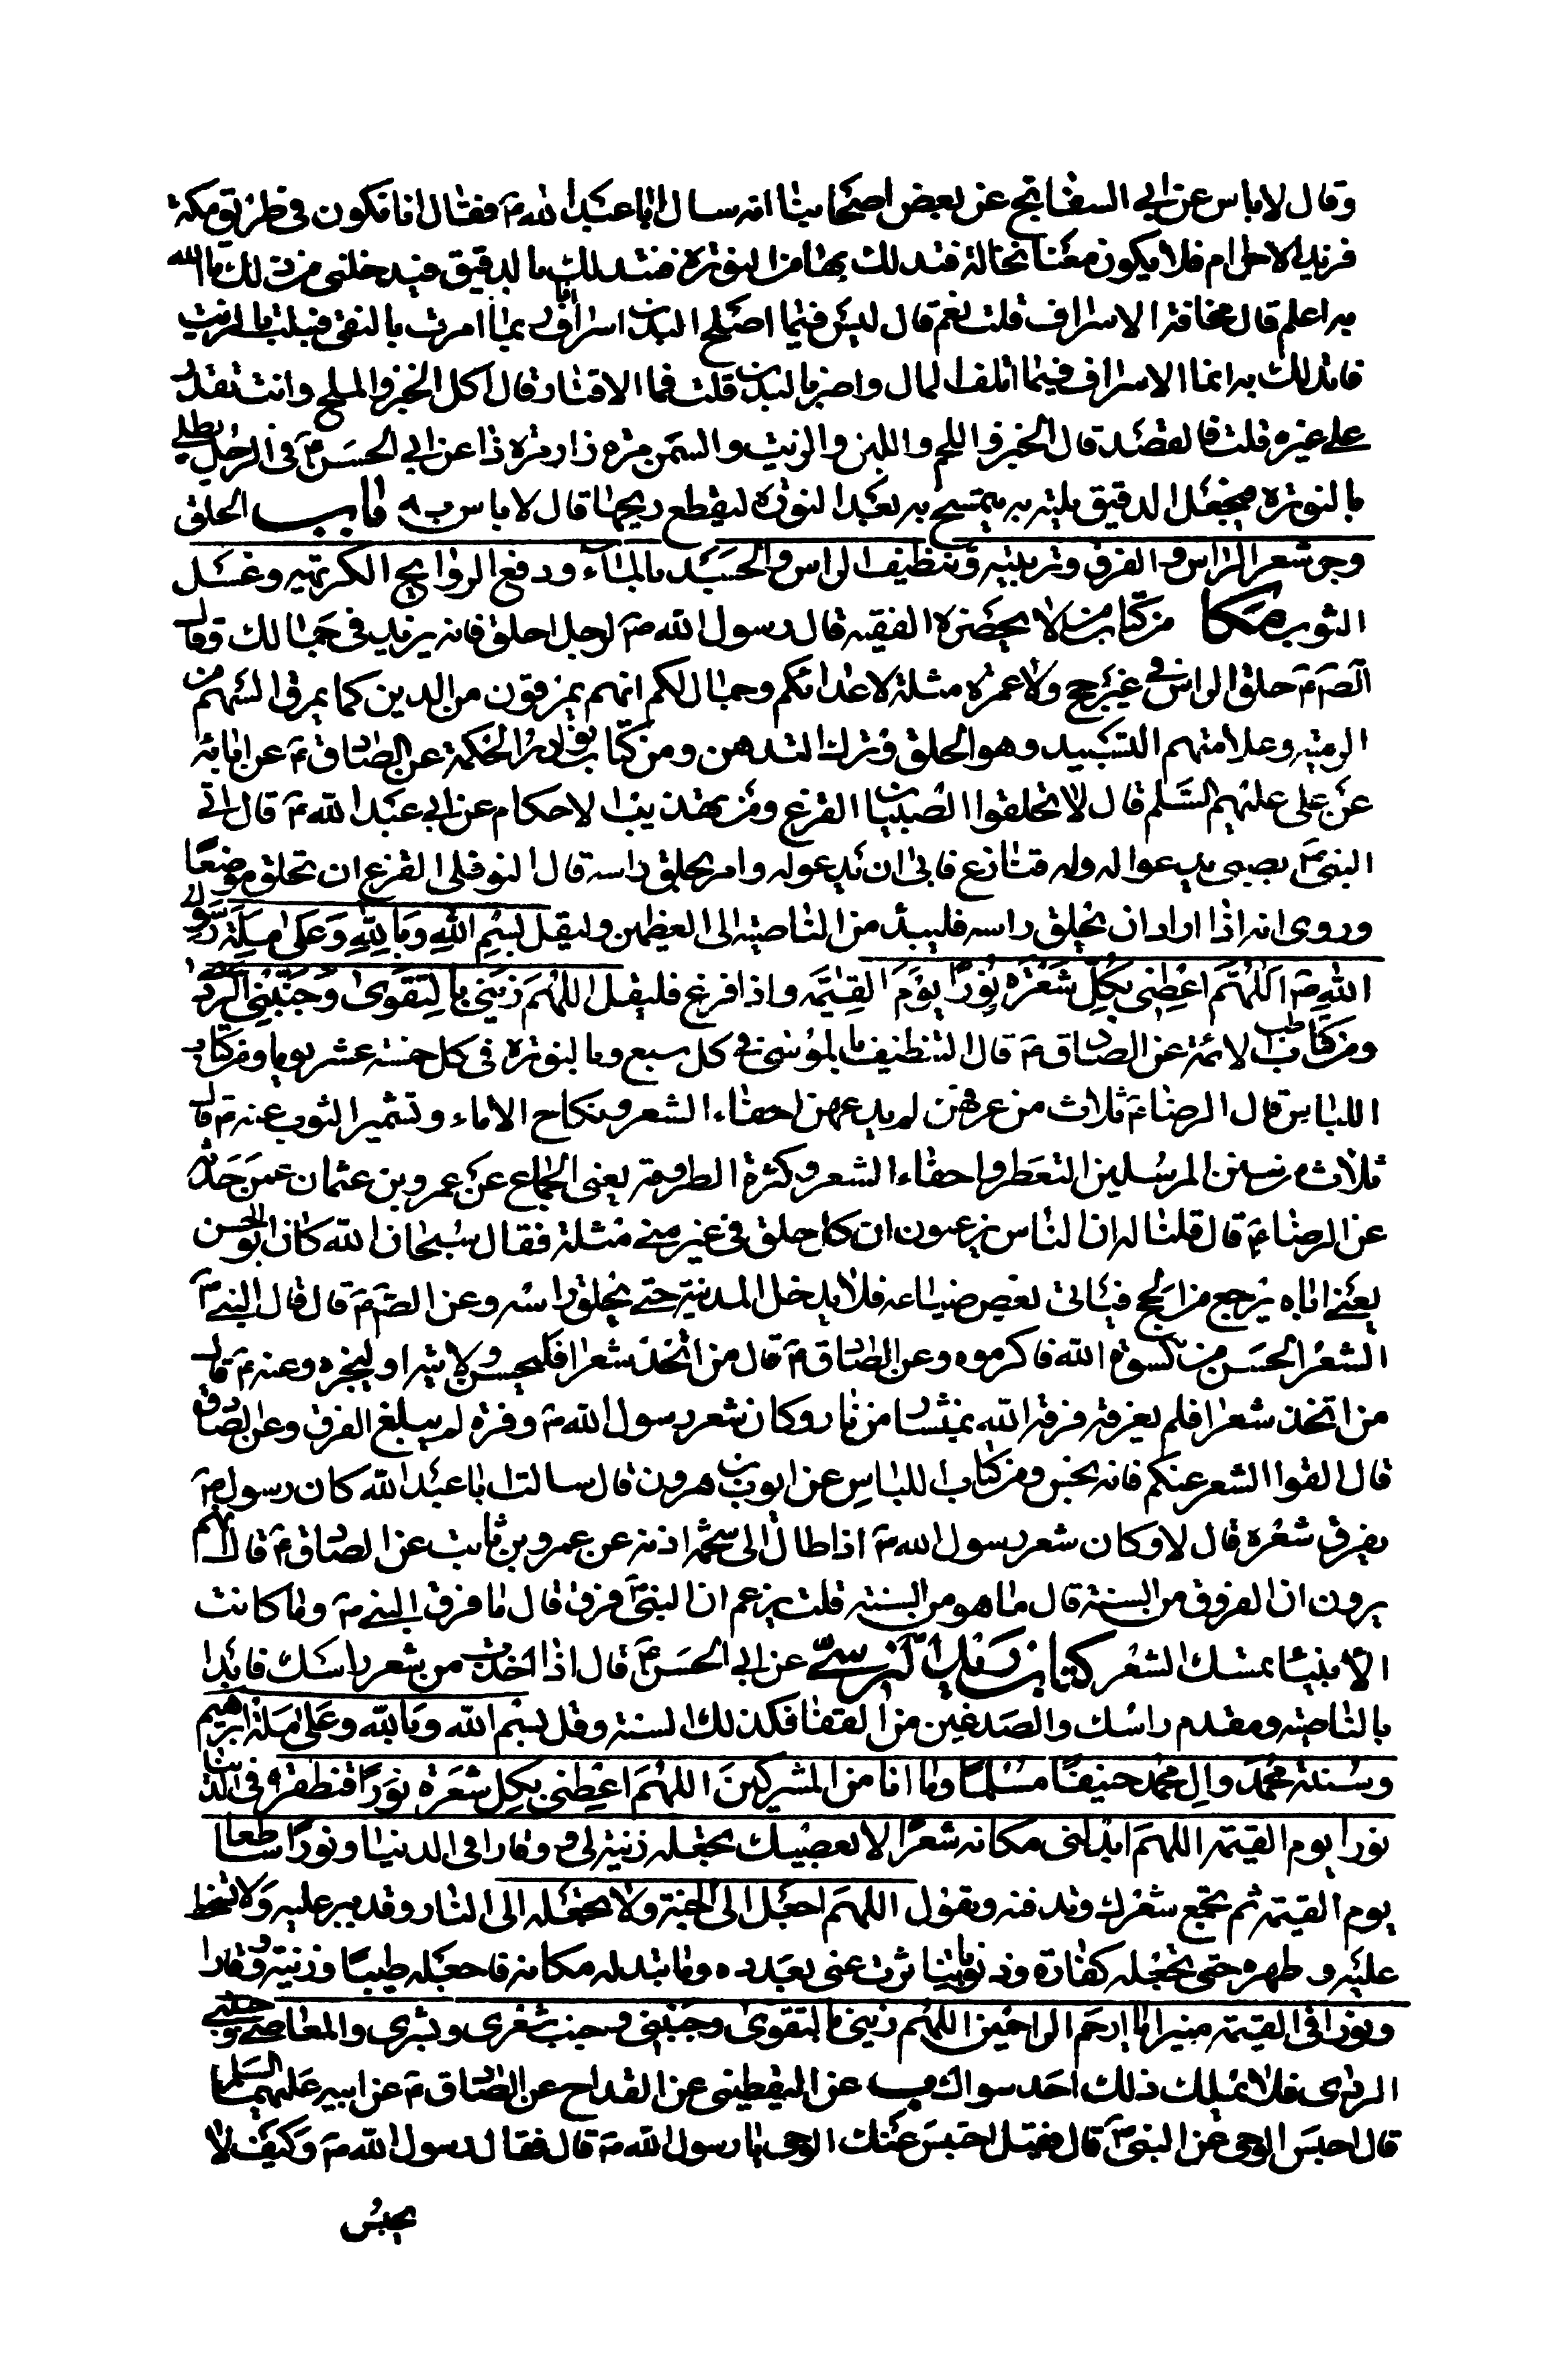 وقال لا باس عن ابي السفاتج عن بعض اصحابنا انه سال ابا عبد الله ع فقال انا نكون في طريق مكة
فنريد الاحرام فلا يكون معنا نخالة نتدلك بها من النورة فنتدلك بالدقيق فيدخلني من ذلك ما الله
به اعلم قال مخافة الاسراف قلت نعم قال ليس فيما اصلح البدن اسراف انا ربما امرت بالنقي فيلت بالزيت
فاتدلك به انما الاسراف فيما اتلف المال واضر بالبدن قلت فما الاقتار قال اكل الخبز والملح وانت تقدر
على غيره قلت فالقصد قال الخبز واللحم واللبن والزيت والسمن مرة ذا ومرة ذا عن ابي الحسن ع في الرجل يطلي
بالنورة فيجعل الدقيق يلته به يتمسح به بعد النورة ليقطع ريحها قال لا باس به باب الحلق
وجز شعر الراس و الفرق وتربيته وتنظيف الراس والجسد بالماء ودفع الروايح الكريهة وغسل
الثوب مكا من كتاب من لا يحضره الفقيه قال رسول الله ص لرجل احلق فانه يزيد في جمالك وقال
الص ع حلق الراس في غير حج ولا عمرة مثلة لاعدائكم وجمال لكم انهم يمرقون من الدين كما يمرق السهم من
الرمية وعلامتهم التسبيد وهو الحلق وترك التدهن ومن كتاب نوادر الحكمة عن الصادق ع عن ابائه
عن علي عليهم السلم قال لا تحلقوا الصبيان القزع ومن تهذيب الاحكام عن ابي عبد الله ع قال اتي
النبي ص بصبي يدعو له وله قنازع فابى ان يدعو له وامر بحلق راسه قال النوفلي القزع ان تحلق موضعا
وروى انه اذا اراد ان يحلق راسه فليبدء من الناصية الى العظمين وليقل بسم الله وبالله وعلى ملة رسول
الله ص اللهم اعطني بكل شعرة نورا يوم القيمة واذا فرغ فليقل اللهم زيني بالتقوى وجنبني الردى
ومن كتاب طب الائمة عن الصادق ع قال التنظيف بالموسى في كل سبع وبالنورة في كل خمسة عشر يوما ومن كتاب
اللباس قال الرضا ع ثلاث من عرفهن لم يدعهن احفاء الشعر ونكاح الاماء وتشمير الثوب عنه ع قال
ثلاث من سنن المرسلين التعطر واحفاء الشعر وكثرة الطروقة يعني الجماع عن عمرو بن عثمان عمن حدثه
عن الرضا ع قال قلنا له ان الناس يزعمون ان كل حلق في غير منى مثلة فقال سبحان الله كان ابو الحسن
يعني اباه يرجع من الحج فياتي بعض ضياعه فلا يدخل المدينة حتى يحلق راسه وعن الص ع قال قال النبي ص
الشعر الحسن من كسوة الله فاكرموه وعن الصادق ع قال من اتخذ شعرا فليحسن ولايته او ليجزه وعنه ع قال
من اتخذ شعرا فلم يفرقه فرقه الله بمنشار من نار وكان شعر رسول الله ص وفرة لم يبلغ الفرق وعن الصادق
قال القوا الشعر عنكم فانه نجس ومن كتاب اللباس عن ايوب بن هرون قال سالت ابا عبد الله كان رسول ص
يفرق شعره قال لا وكان شعر رسول الله ص اذا طال الى شحمة اذنه عن عمرو بن ثابت عن الصادق ع قال انهم
يرون ان الفروق من السنة قال ما هو من السنة قلت يزعم ان النبي ص فرق قال ما فرق النبي ص وما كانت
الانبياء تمسك الشعر كتاب زيد النرسي عن ابي الحسن ع قال اذا اخذت من شعر راسك فابدا
بالناصية ومقدم راسك والصدغين من القفا فكذلك السنة وقل بسم الله وبالله وعلى ملة ابرهيم
وسنة محمد وال محمد حنيفا مسلما وما انا من المشركين اللهم اعطني بكل شعرة نورا فنطفره في الدنيا
نورا يوم القيمة اللهم ابدلني مكانه شعرا لا يعصيك تجعله زينة لي و وقارا في الدنيا ونورا ساطعا
يوم القيمة ثم تجمع شعرك وتدفنه وتقول اللهم اجعله الى الجنة ولا تجعله الى النار وقدس عليه ولا تسخط
عليه و طهره حتى تجعله كفارة وذنوبا تناثرت عني بعدده وما تبدله مكانه فاجعله طيبا وزينة ووقارا
ونورا في القيمة منيرا يا ارحم الراحمين اللهم زيني بالتقوى وجنبني وجنب شعري وبشري والمعاصي وجنبني
الردى فلا يملك ذلك احد سواك ب عن اليقطيني عن القداح عن الصادق ع عن ابيه عليهما السلم
قال احبس الوحي عن النبي ص قال فقيل احتبس عنك الوحي يا رسول الله ص قال فقال رسول الله ص وكيف لا
يحبس